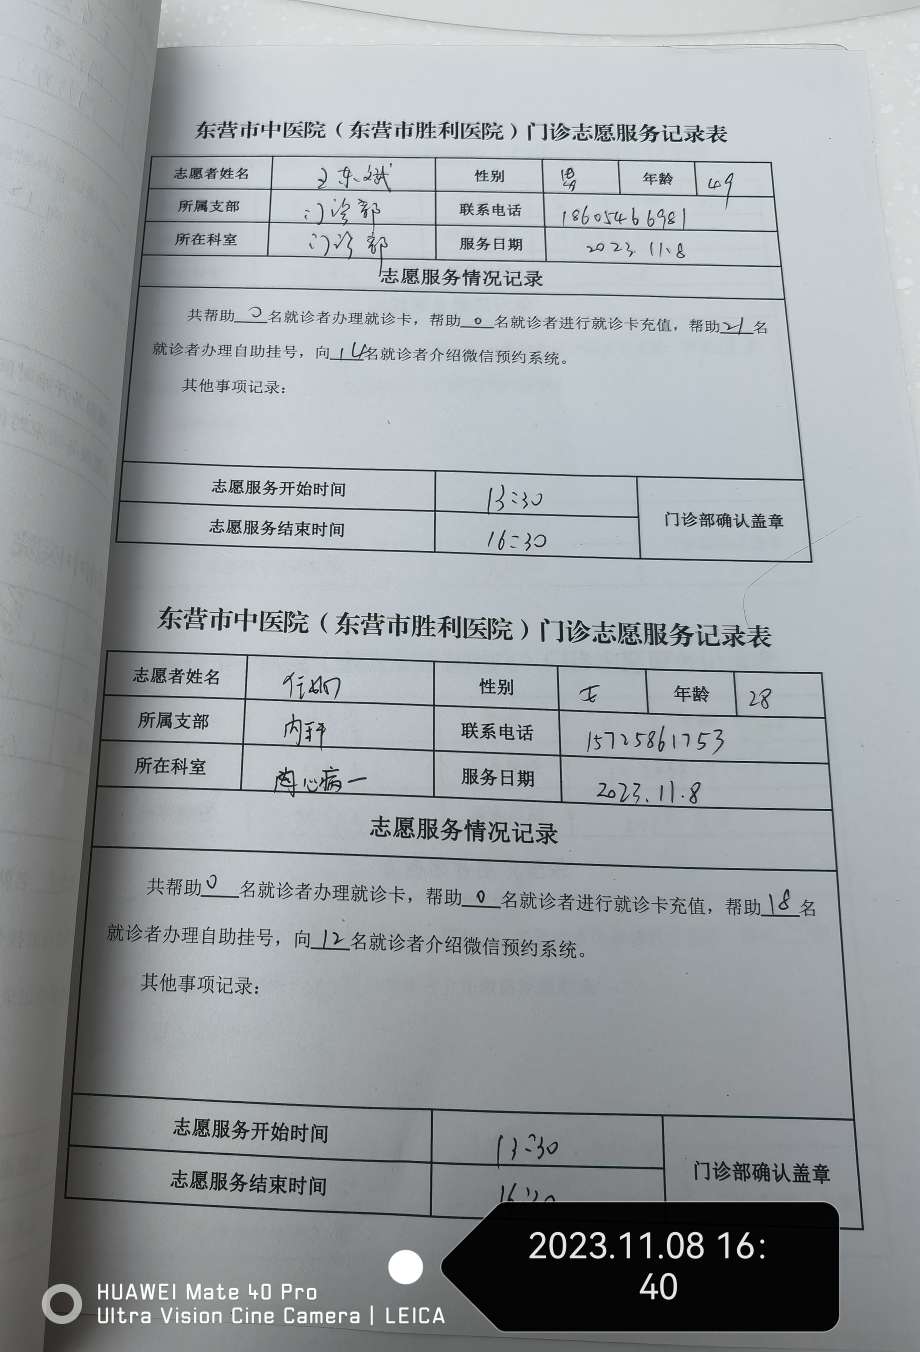 东营市中医院（东营市胜利医院）门诊志愿服务记录表
志愿者姓名 王东斌 性别 男 年龄 49
所属支部 门诊部 联系电话 18605466981
所在科室 门诊部 服务日期 2023.11.8
志愿服务情况记录
共帮助0名就诊者办理就诊卡，帮助0名就诊者进行就诊卡充值，帮助21名
就诊者办理自助挂号，向14名就诊者介绍微信预约系统。
其他事项记录：
志愿服务开始时间 13:30
门诊部确认盖章
志愿服务结束时间 16:30
东营市中医院（东营市胜利医院）门诊志愿服务记录表
志愿者姓名 任 性别 女 年龄 28
所属支部 内科 联系电话 15725861753
所在科室 心病一 服务日期 2023.11.8
志愿服务情况记录
共帮助0名就诊者办理就诊卡，帮助0名就诊者进行就诊卡充值，帮助18名
就诊者办理自助挂号，向12名就诊者介绍微信预约系统。
其他事项记录：
志愿服务开始时间 13:30
门诊部确认盖章
志愿服务结束时间
2023.11.08 16:
40
HUAWEI Mate 40 Pro
Ultra Vision Cine Camera | LEICA